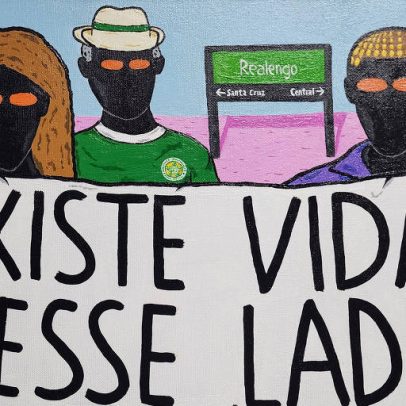 Realengo
←Santa Cruz Central→
XISTE VIDA
ESSE LAD